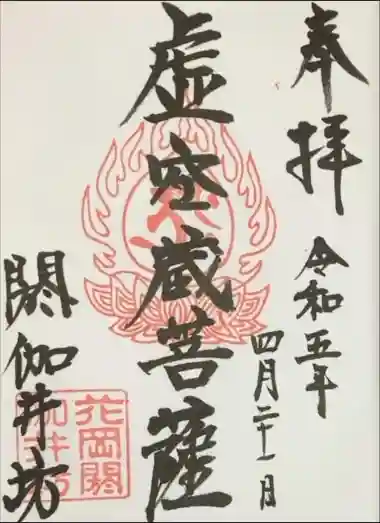 奉拝
令和五年
四月二十一日
虚空蔵菩薩
閼伽井坊
花岡閼
伽井坊